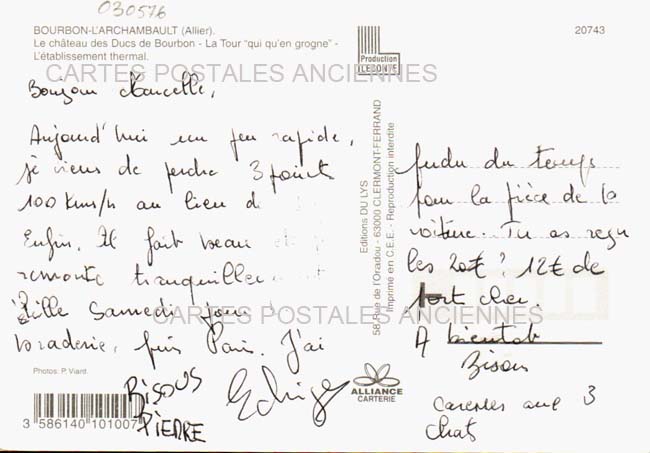 030576
BOURBON-L'ARCHAMBAULT (Allier).
Le château des Ducs de Bourbon - La Tour "qui qu'en grogne" -
L'établissement thermal.
Production
LECONTE
20743
CARTES POSTALES ANCIENNES
Bonjour Marcelle,
Aujourd'hui un peu rapide,
je viens de perdre 3 points
100 Km/h au lieu de
Enfin, Il fait beau
remonte tranquillement
Lille Samedi pour
braderie, puis Paris. J'ai
Photos: P. Viard.
BISOUS
PIERRE
3 586140 101007
Editions DU LYS
58, Rue de l'Oradou - 63000 CLERMONT-FERRAND
Imprimé en C.E.E. - Reproduction interdite
ALLIANCE
CARTERIE
perdu du temps
pour la pièce de la
voiture. Tu as reçu
les 20€? 12€ de
port cher.
A bientôt
Bisou
Caresses aux 3
chats
CARTES POSTALES ANCIENNES